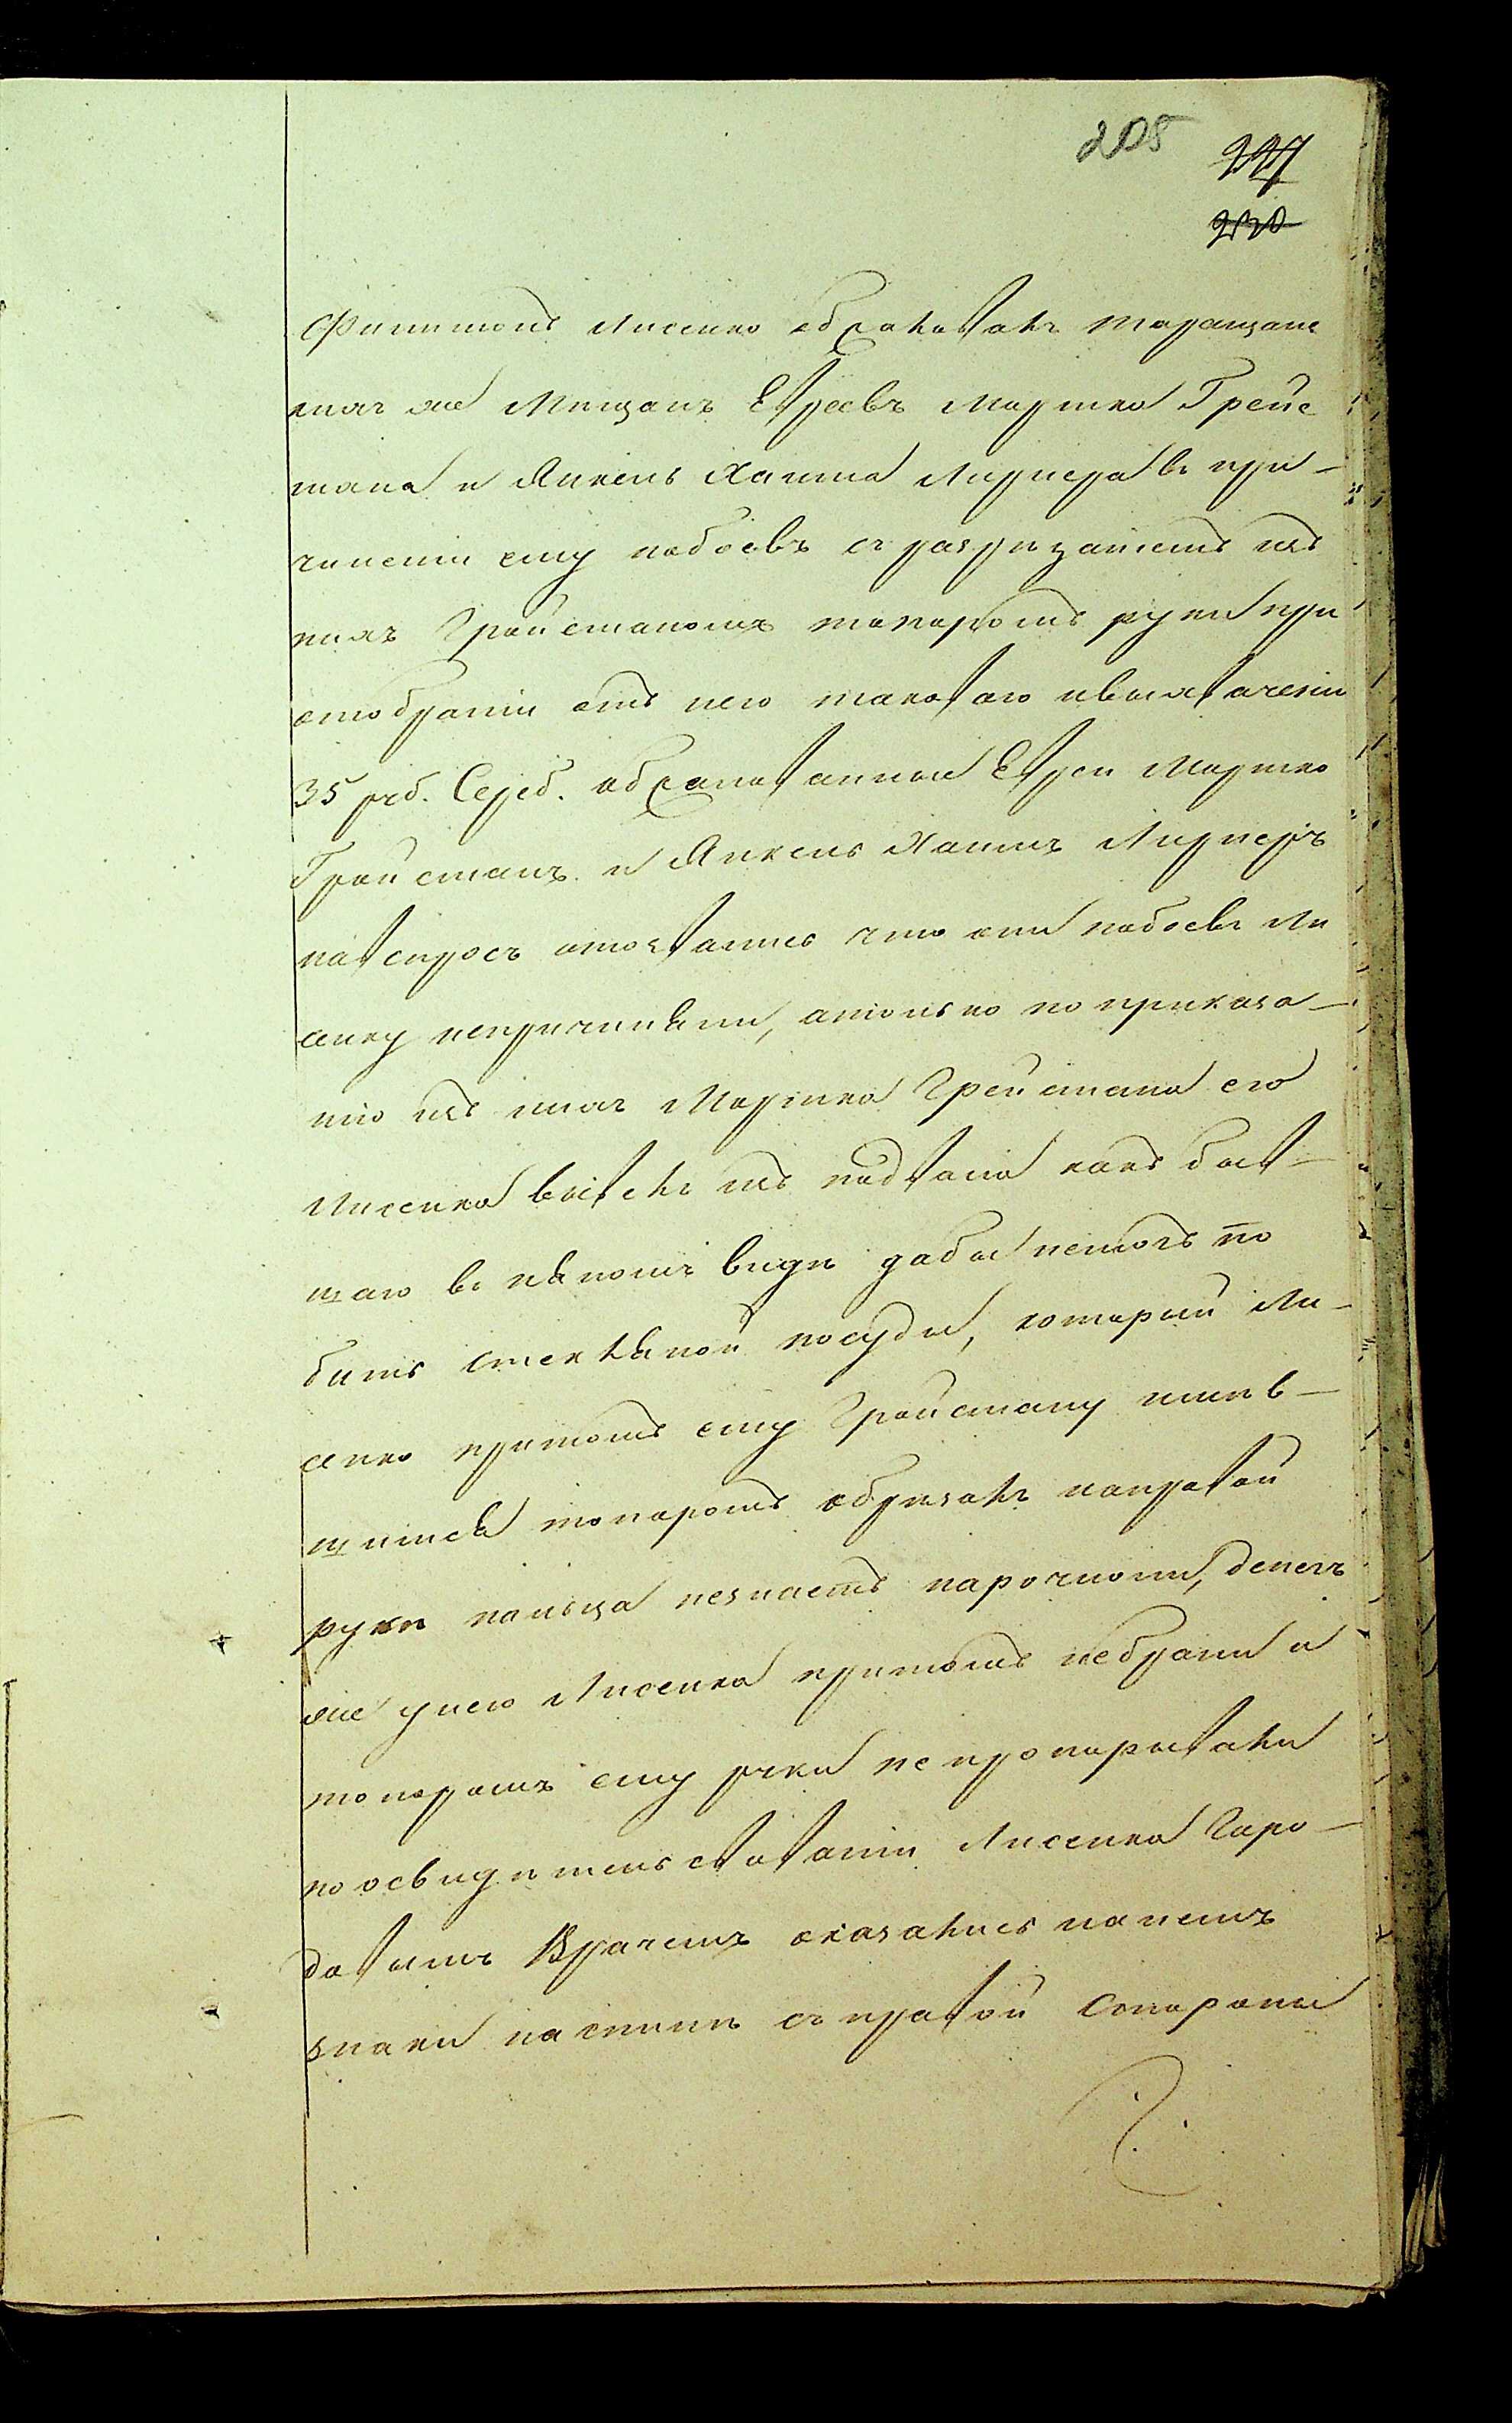 205
227
220
Филимонъ Лисенко обжаловалъ таращанс
кихъ же Мѣщанъ Евреевъ Мортка Грейс
мана и Янкель Хаима Лирнера въ при-
чиненіи ему побоевъ съ разрѣзаніемъ изъ
нихъ Гройсманомъ топоромъ руки при
отобраніи отъ него таковаго и вытачени
35 руб. Сереб. обжалованные Евреи Мортко
Гройсманъ и Янкель Хаимъ Лирнеръ
на спросъ отозвались что они побоевъ Ли
сенку непричиняли, а только по приказа-
нію изъ нихъ Мортка Гройсмана его
Лисенка вывелъ изъ подвала какъ быв-
шаго въ пьяномъ видѣ дабы немогъ по
бить стеклянной посуды, который Ли-
сенко притомъ ему Гройсману имѣв-
шимся топоромъ обрезалъ направой
рукѣ пальца незнаетъ нарочноли, денегъ
же унего Лисенка притомъ небрали и
топоромъ ему руки не пропоровали
по освидѣтельствованіи Лисенка Горо-
довымъ Врачемъ оказались на немъ
знаки на спинѣ съ правой стороны